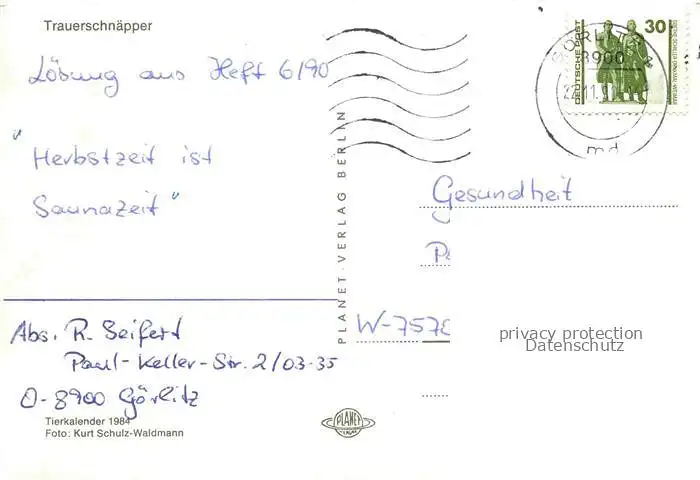 Trauerschnäpper
Lösung aus Heft 6/90
"Herbstzeit ist
Saunazeit"
Abs. R. Seifert
Paul-Keller-Str. 2/03-35
O-8900 Görlitz
Tierkalender 1984
Foto: Kurt Schulz-Waldmann
PLANET-VERLAG BERLIN
PLANET
VERLAG
DEUTSCHE POST
30
GÖRLITZ 2
8900
md
Gesundheit
W-757
privacy protection
Datenschutz